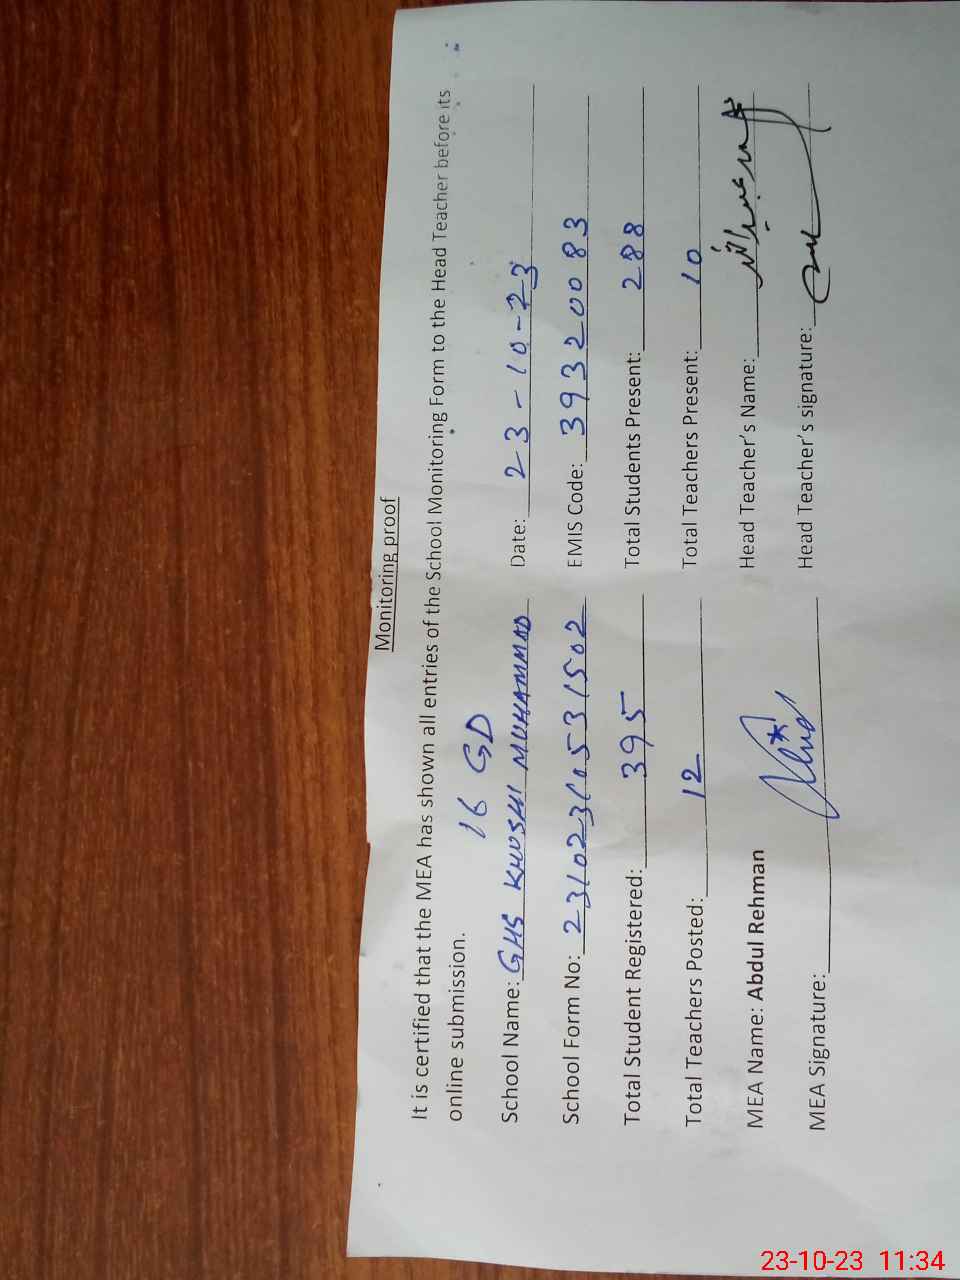 Monitoring proof
It is certified that the MEA has shown all entries of the School Monitoring Form to the Head Teacher before its
online submission.
16 GD
School Name: GHS KHUSHI MUHAMMAD Date: 23-10-23
School Form No: 2310231053 1502 EMIS Code: 39320083
Total Student Registered: 395 Total Students Present: 288
Total Teachers Posted: 12 Total Teachers Present: 10
MEA Name: Abdul Rehman Head Teacher's Name:
MEA Signature: Head Teacher's signature:
23-10-23 11:34